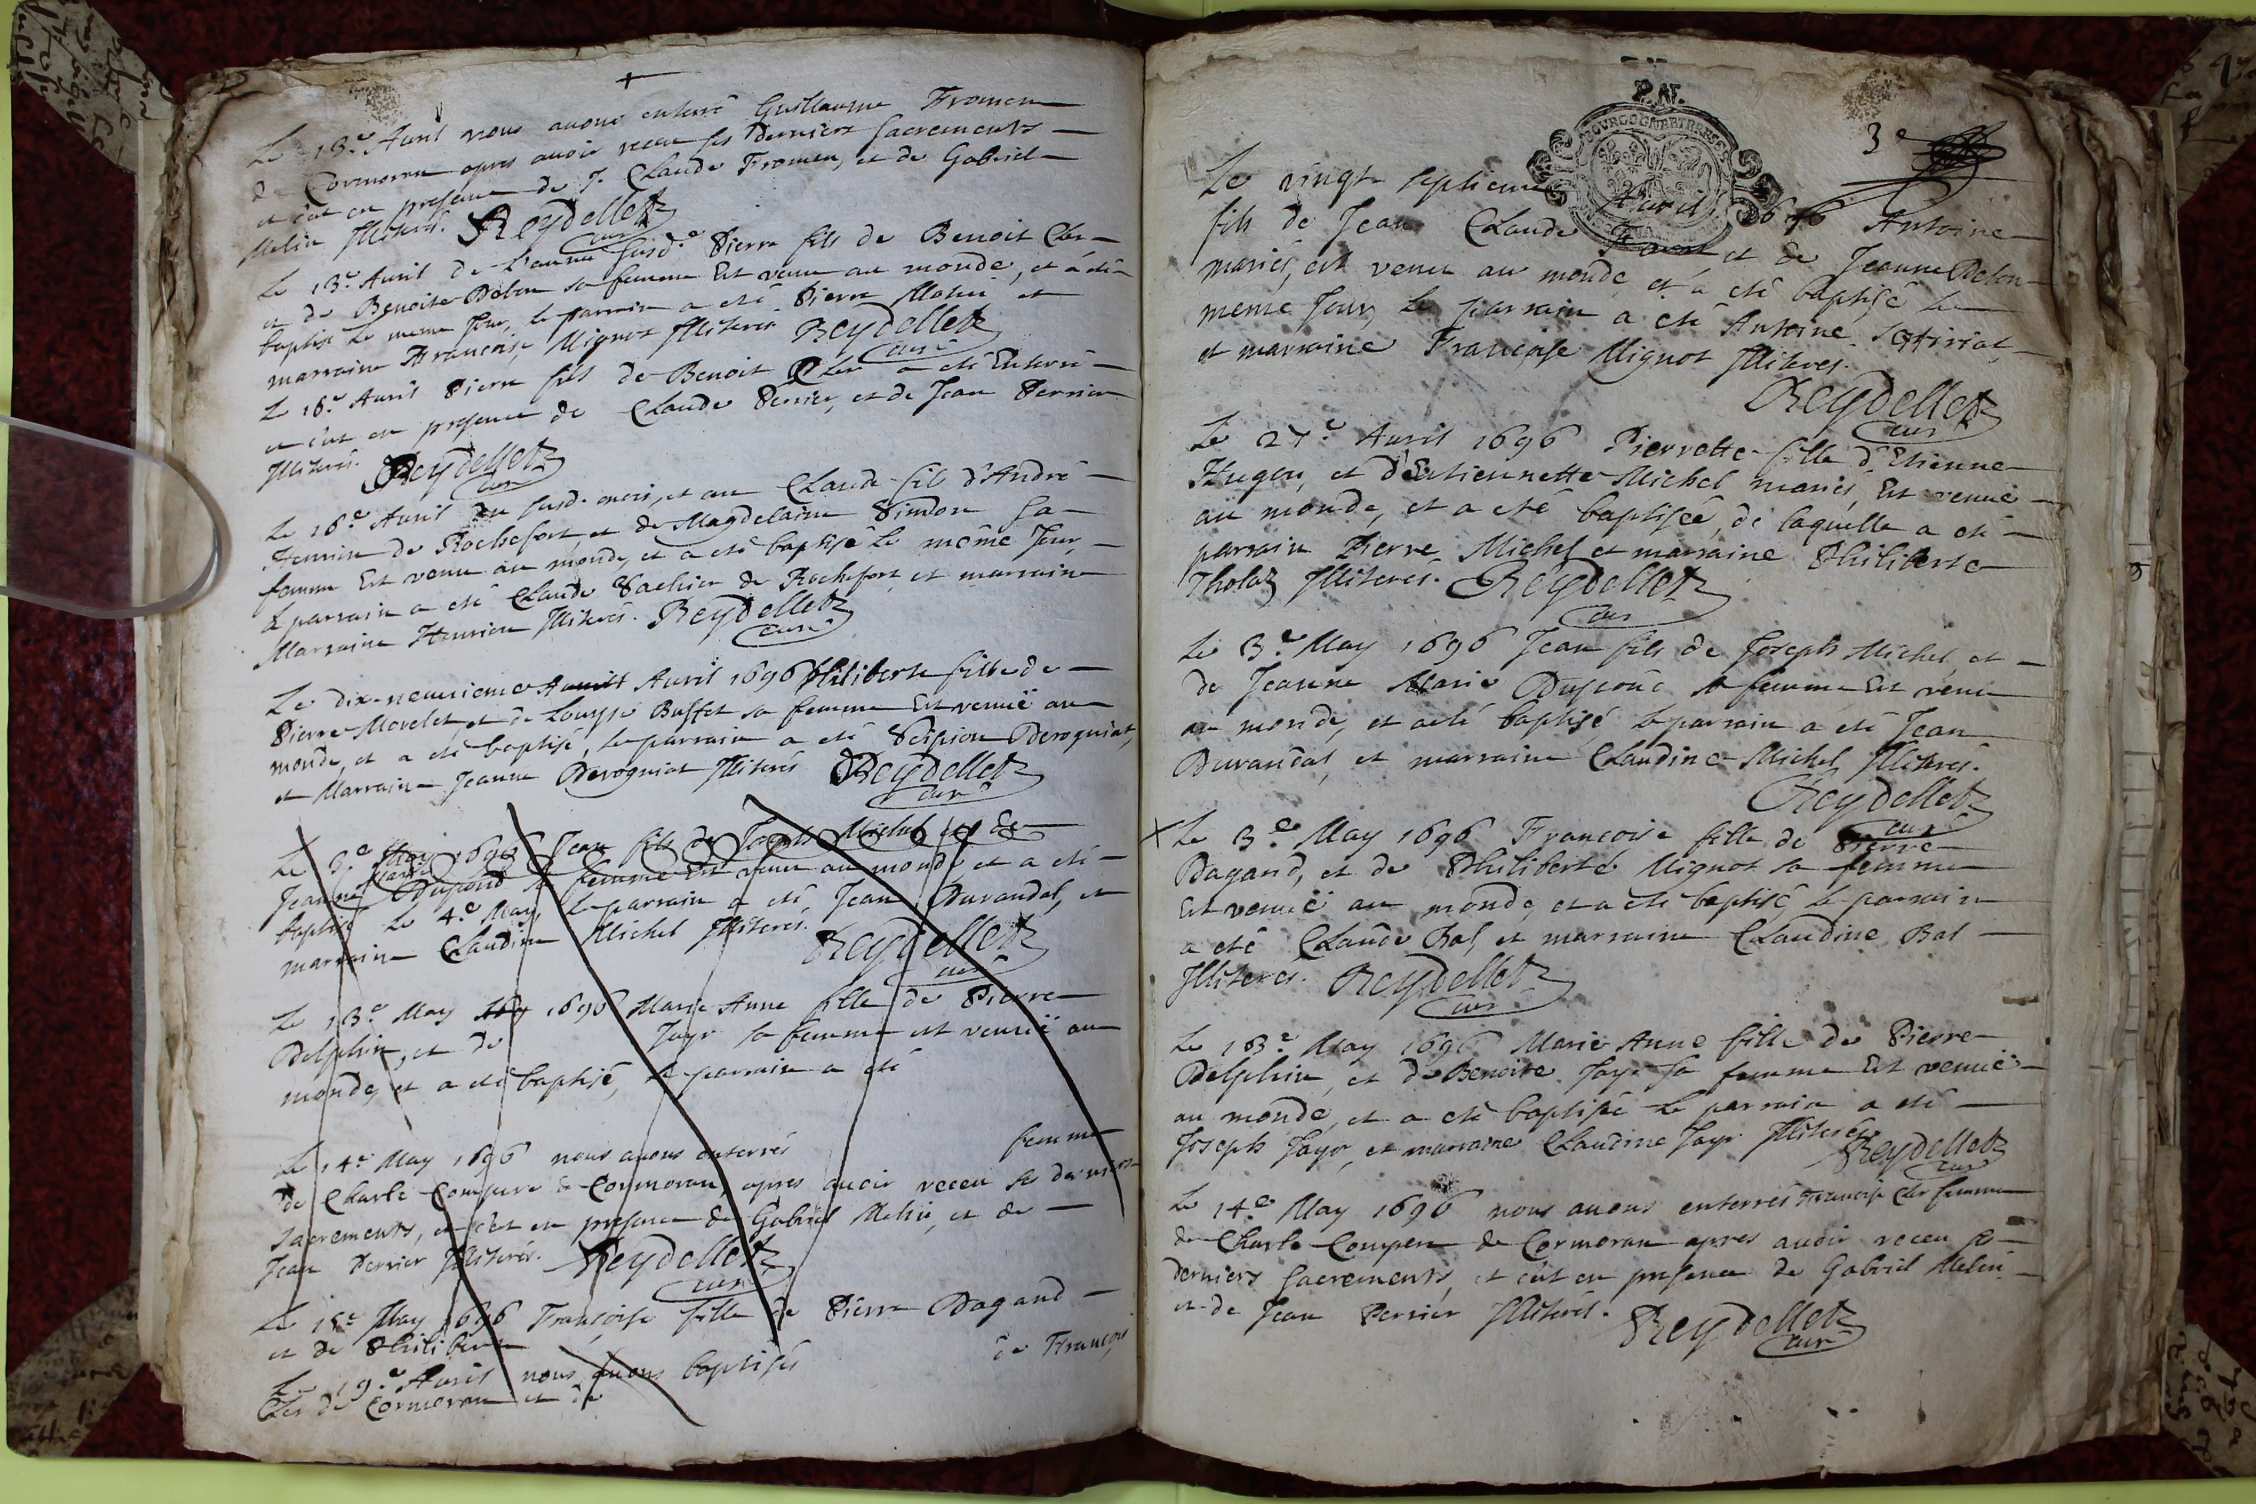 Le 13.e Auril nous auons enterré Guillaume Fromen
de Cormoran apres auoir receu ses Derniers Sacrements
et c'est en presence de J. Claude Fromen, et de Gabriel
Melin Jlliterés. Reydellet
curé
Le 13.e Auril de L'année susd.e Pierre fils de Benoit Cler
et de Benoite Debou sa femme Est venu au monde, et a été
baptisé Le meme Jour, le parrain a eté Pierre Molin et
marraine Francoise Mignot Jlliterés Reydellet
curé
Le 16.e Auril Pierre fils de Benoit Cler a eté Enterré
et c'est en presence de Claude Perrier, et de Jean Perrier
Jlliterés. Reydellet
curé
Le 16.e Auril du susd. mois, et an Claude fils d'André
Henrion de Rochefort, et de Magdelaine Simdon sa
femme Est venu au monde, et a eté baptisé Le même Jour,
Le parrain a eté Claude Vachier de Rochefort, et marraine
Marraine Henrion Jlliterés. Reydellet
curé
Le dix-neuuieme Auril 1696 Philiberte fille de
Pierre Morelet, et de Louyse Buffet sa femme Est venuë au
monde, et a eté baptisé, Le parrain a eté Scipion Deroguiat,
et Marraine Jeanne Deroguiat Jlliterés Reydellet
curé
Le 3.e May 1696 Jean fils de Joseph Michel et de
Jeanne Marie Duponé sa femme Est venu au monde, et a eté
baptisé Le 4.e May, Le parrain a eté Jean Durandal, et
marraine Claudine Michel Jlliterés. Reydellet
curé
Le 13.e May 1696 Marie Anne fille de Pierre
Delphin, et de Jayr sa femme est venuë au
monde, et a eté baptisé, Le parrain a eté
Le 14.e May 1696 nous auons enterrés femme
de Charle Compere de Cormoran, apres auoir receu ses derniers
Sacrements, et c'est en presence de Gabriel Melin, et de
Jean Perrier Jlliterés. Reydellet
curé
Le 15.e May 1696 Françoise fille de Pierre Dagand
et de Philiberte
Le 19.e Auril nous auons baptisés de François
Cler de Cormoran et de
3.e
Le vingt septieme Auril 1696 Antoine
fils de Jean Claude et de Jeanne Debou
mariés, est venu au monde, et a eté baptisé Le
meme Jour, Le parrain a eté Antoine
et marraine Françoise Mignot Jlliteres.
Reydellet
curé
Le 27.e Auril 1696 Pierrette fille d'Etienne
Hugon, et d'Estiennette Michel mariés, Est venuë
au monde, et a eté baptisée, de laquelle a eté
parrain Pierre Michel et marraine Philiberte
Tholaz Jlliterés. Reydellet
curé
Le 3.e May 1696 Jean fils de Joseph Michel, et
de Jeanne Marie Duponé sa femme Est venu
au monde, et a eté baptisé Le parrain a eté Jean
Durandal, et marraine Claudine Michel Jlliterés.
Reydellet
curé
Le 3.e May 1696 Francoise fille de Pierre
Dagand, et de Philiberte Mignot sa femme
Est venuë au monde, et a eté baptisé, le parrain
a eté Claude Bal, et marraine Claudine Bal
Jlliteres. Reydellet
curé
Le 13.e May 1696 Marie Anne fille de Pierre
Delphin, et de Benoite Jayr sa femme Est venuë
au monde, et a eté baptisée Le parrain a eté
Joseph Jayr, et marraine Claudine Jayr Jlliterés
Reydellet
curé
Le 14.e May 1696 nous auons enterrés Francoise Cler femme
de Charle Compere de Cormoran apres auoir receu ses
derniers Sacrements, et c'est en presence de Gabriel Melin
et de Jean Perrier Jlliterés. Reydellet
curé